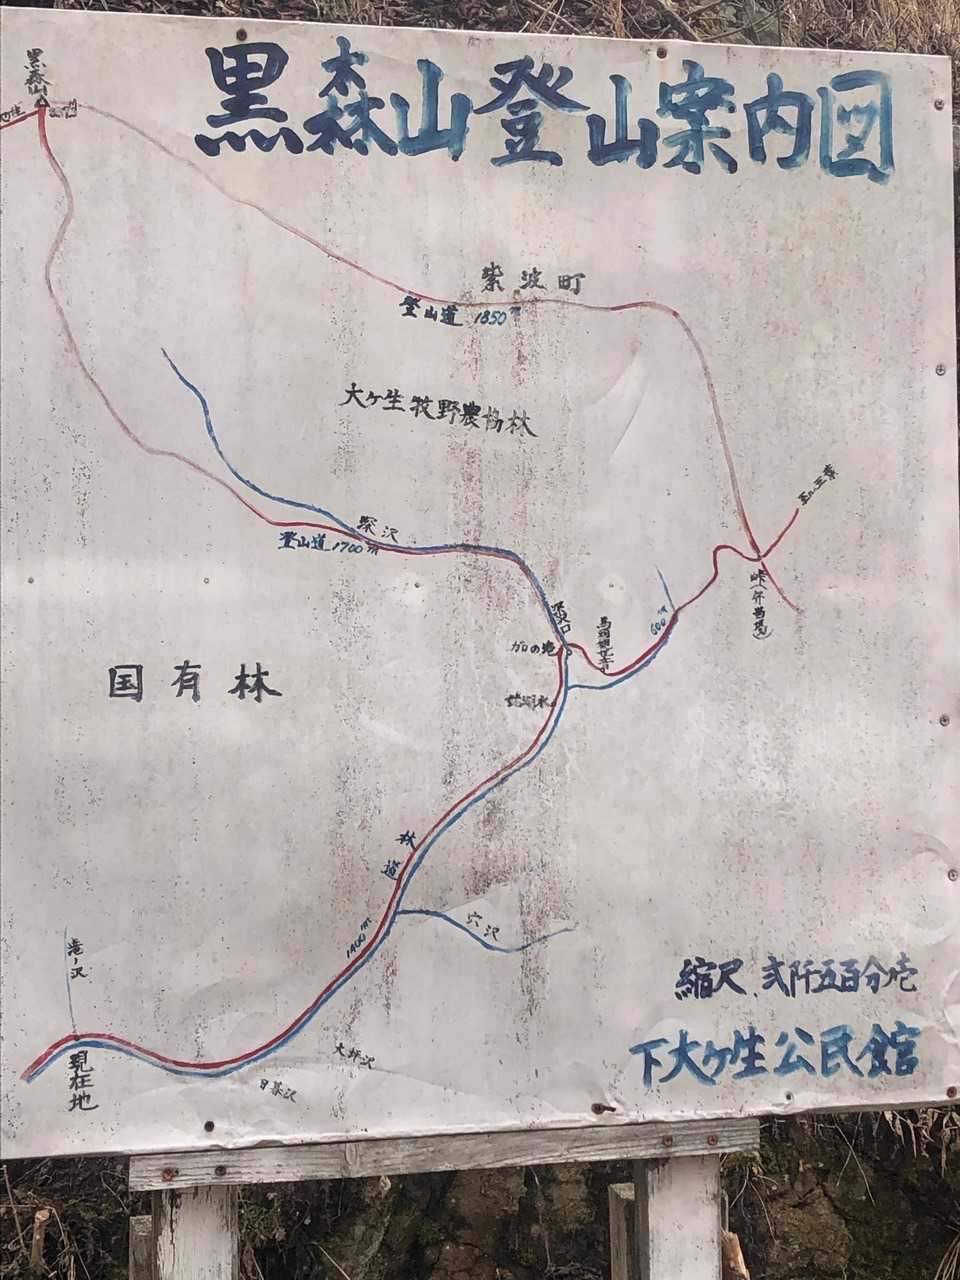 黒森山登山案内図
黒森山
紫波町
登山道 1850m
大ヶ生牧野農協林
深沢
登山道1700m
600m
国有林
林道
1400m
穴沢
滝ノ沢
現在地
大坪沢
日暮沢
縮尺 弐阡五百分壱
下大ヶ生公民館